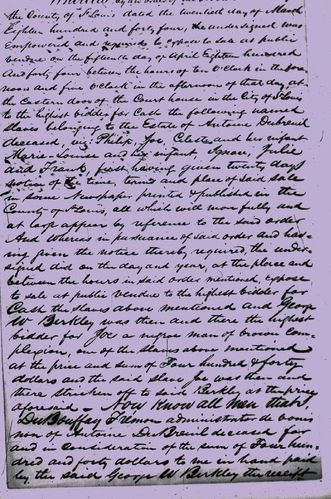 the County of St Louis dated the twentieth day of March
Eighteen hundred and forty four, the undersigned was
Empowered and required to expose to sale at public
Vendue on the fifteenth day of April Eighteen hundred
And forty four between the hours of ten O'Clock in the fore
noon and five O'Clock in the afternoon of that day, at
the Eastern door of the Court house in the City of St Louis
to the highest bidder for Cash the following named
slaves belonging to the Estate of Antoine Dubreuil
deceased, viz, Philis, Joe, Celeste and his infant
Marie Louise and his infant, Ignace, Julie
And Frank, first having given twenty days
notice of the time, terms and place of said sale
in some Newspaper printed & published in the
County of St Louis, all which will more fully and
at large appear by reference to the said order
And Whereas in pursuance of said order and hav-
ing given the notice thereby required, the under-
signed did on the day and year, at the place and
between the hours in said order mentioned, expose
to sale at public Vendue to the highest bidder for
Cash the slaves above mentioned and George
W Berkley was then and there the highest
bidder for Joe a negro man of brown Com-
plexion, one of the slaves above mentioned
at the price and sum of Four hundred & forty
dollars and the said slave Joe was then and
there stricken off to said Berkley at the price
aforesaid – Now Know all men that I
DuBouffay Edmon administrator de bonis
non of Antoine DuBreuil deceased for
and in Consideration of the sum of Four hun-
dred and forty dollars to me in hand paid
by the said George W Berkley the receipt